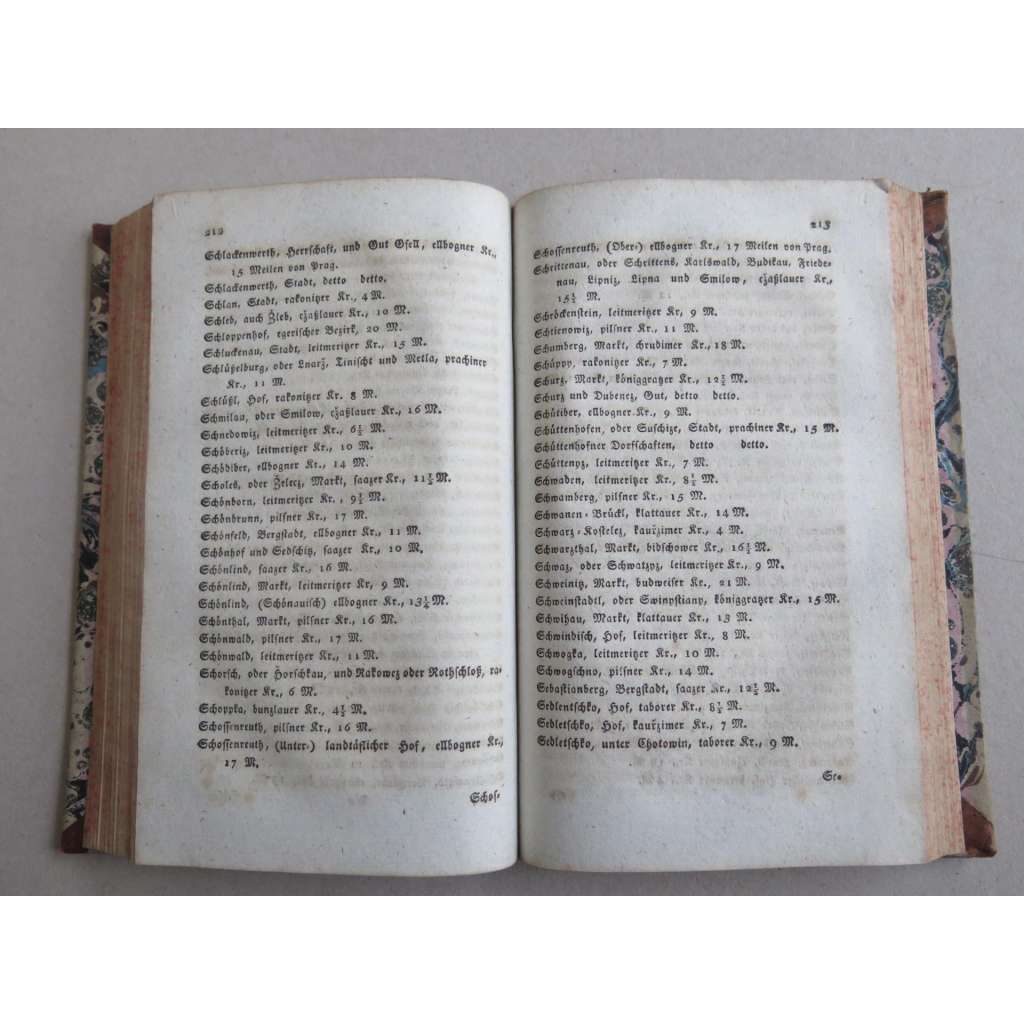 212
Schlackenwerth, Herrschaft, und Gut Gsell, ellbogner Kr.,
15 Meilen von Prag.
Schlackenwerth, Stadt, detto detto.
Schlan, Stadt, rakonitzer Kr., 4 M.
Schleb, auch Žleb, čžaßlauer Kr., 10 M.
Schloppenhof, egerischer Bezirk, 20 M.
Schluckenau, Stadt, leitmeritzer Kr., 15 M.
Schlüßelburg, oder Lnarž, Tinischt und Metla, prachiner
Kr., 11 M.
Schlüßl, Hof, rakonitzer Kr. 8 M.
Schmilau, oder Smilow, čžaßlauer Kr., 16 M.
Schnedowiz, leitmeritzer Kr., 6½ M.
Schöberiz, leitmeritzer Kr., 10 M.
Schödiber, ellbogner Kr., 14 M.
Scholes, oder Želecz, Markt, saazer Kr., 11½ M.
Schönborn, leitmeritzer Kr., 9½ M.
Schönbrunn, pilsner Kr., 17 M.
Schönfeld, Bergstadt, ellbogner Kr., 11 M.
Schönhof und Sedschitz, saazer Kr., 10 M.
Schönlind, saazer Kr., 16 M.
Schönlind, Markt, leitmeritzer Kr, 9 M.
Schönlind, (Schönauisch) ellbogner Kr., 13¼ M.
Schönthal, Markt, pilsner Kr., 16 M.
Schönwald, pilsner Kr., 17 M.
Schönwald, leitmeritzer Kr., 11 M.
Schorsch, oder Horschkau, und Rakowez oder Rothschloß, ra-
konitzer Kr., 6 M.
Schoppka, bunzlauer Kr., 4½ M.
Schossenreuth, pilsner Kr., 16 M.
Schossenreuth, (Unter-) landtäflicher Hof, ellbogner Kr.,
17 M.
Schos-
213
Schossenreuth, (Ober-) ellbogner Kr., 17 Meilen von Prag.
Schrittenau, oder Schrittens, Karlswald, Budikau, Friede-
nau, Lipniz, Lipna und Smilow, čžaßlauer Kr.,
15½ M.
Schröckenstein, leitmeritzer Kr, 9 M.
Schtienowiz, pilsner Kr., 11 M.
Schumberg, Markt, chrudimer Kr., 18 M.
Schüppy, rakonitzer Kr., 7 M.
Schurz, Markt, königgratzer Kr., 12½ M.
Schurz und Dubenez, Gut, detto detto.
Schütiber, ellbogner Kr., 9 M.
Schüttenhofen, oder Suschize, Stadt, prachiner Kr., 15 M.
Schüttenhofner Dorfschaften, detto detto.
Schüttenyz, leitmeritzer Kr., 7 M.
Schwaden, leitmeritzer Kr., 8½ M.
Schwamberg, pilsner Kr., 15 M.
Schwanen-Brückl, klattauer Kr., 14 M.
Schwarz-Kostelez, kauržimer Kr., 4 M.
Schwarzthal, Markt, bidschower Kr., 16½ M.
Schwaz, oder Schwatzyz, leitmeritzer Kr., 9 M.
Schweinitz, Markt, budweiser Kr., 21 M.
Schweinstadtl, oder Swinystiany, königgratzer Kr., 15 M.
Schwihau, Markt, klattauer Kr., 13 M.
Schwindisch, Hof, leitmeritzer Kr., 8 M.
Schwogka, leitmeritzer Kr., 10 M.
Schwogschno, pilsner Kr., 14 M.
Sebastianberg, Bergstadt, saazer Kr., 12½ M.
Sedlentschko, Hof, taborer Kr., 8½ M.
Sedletschko, Hof, kauržimer Kr., 7 M.
Sedletschko, unter Chotowin, taborer Kr., 9 M.
Se-